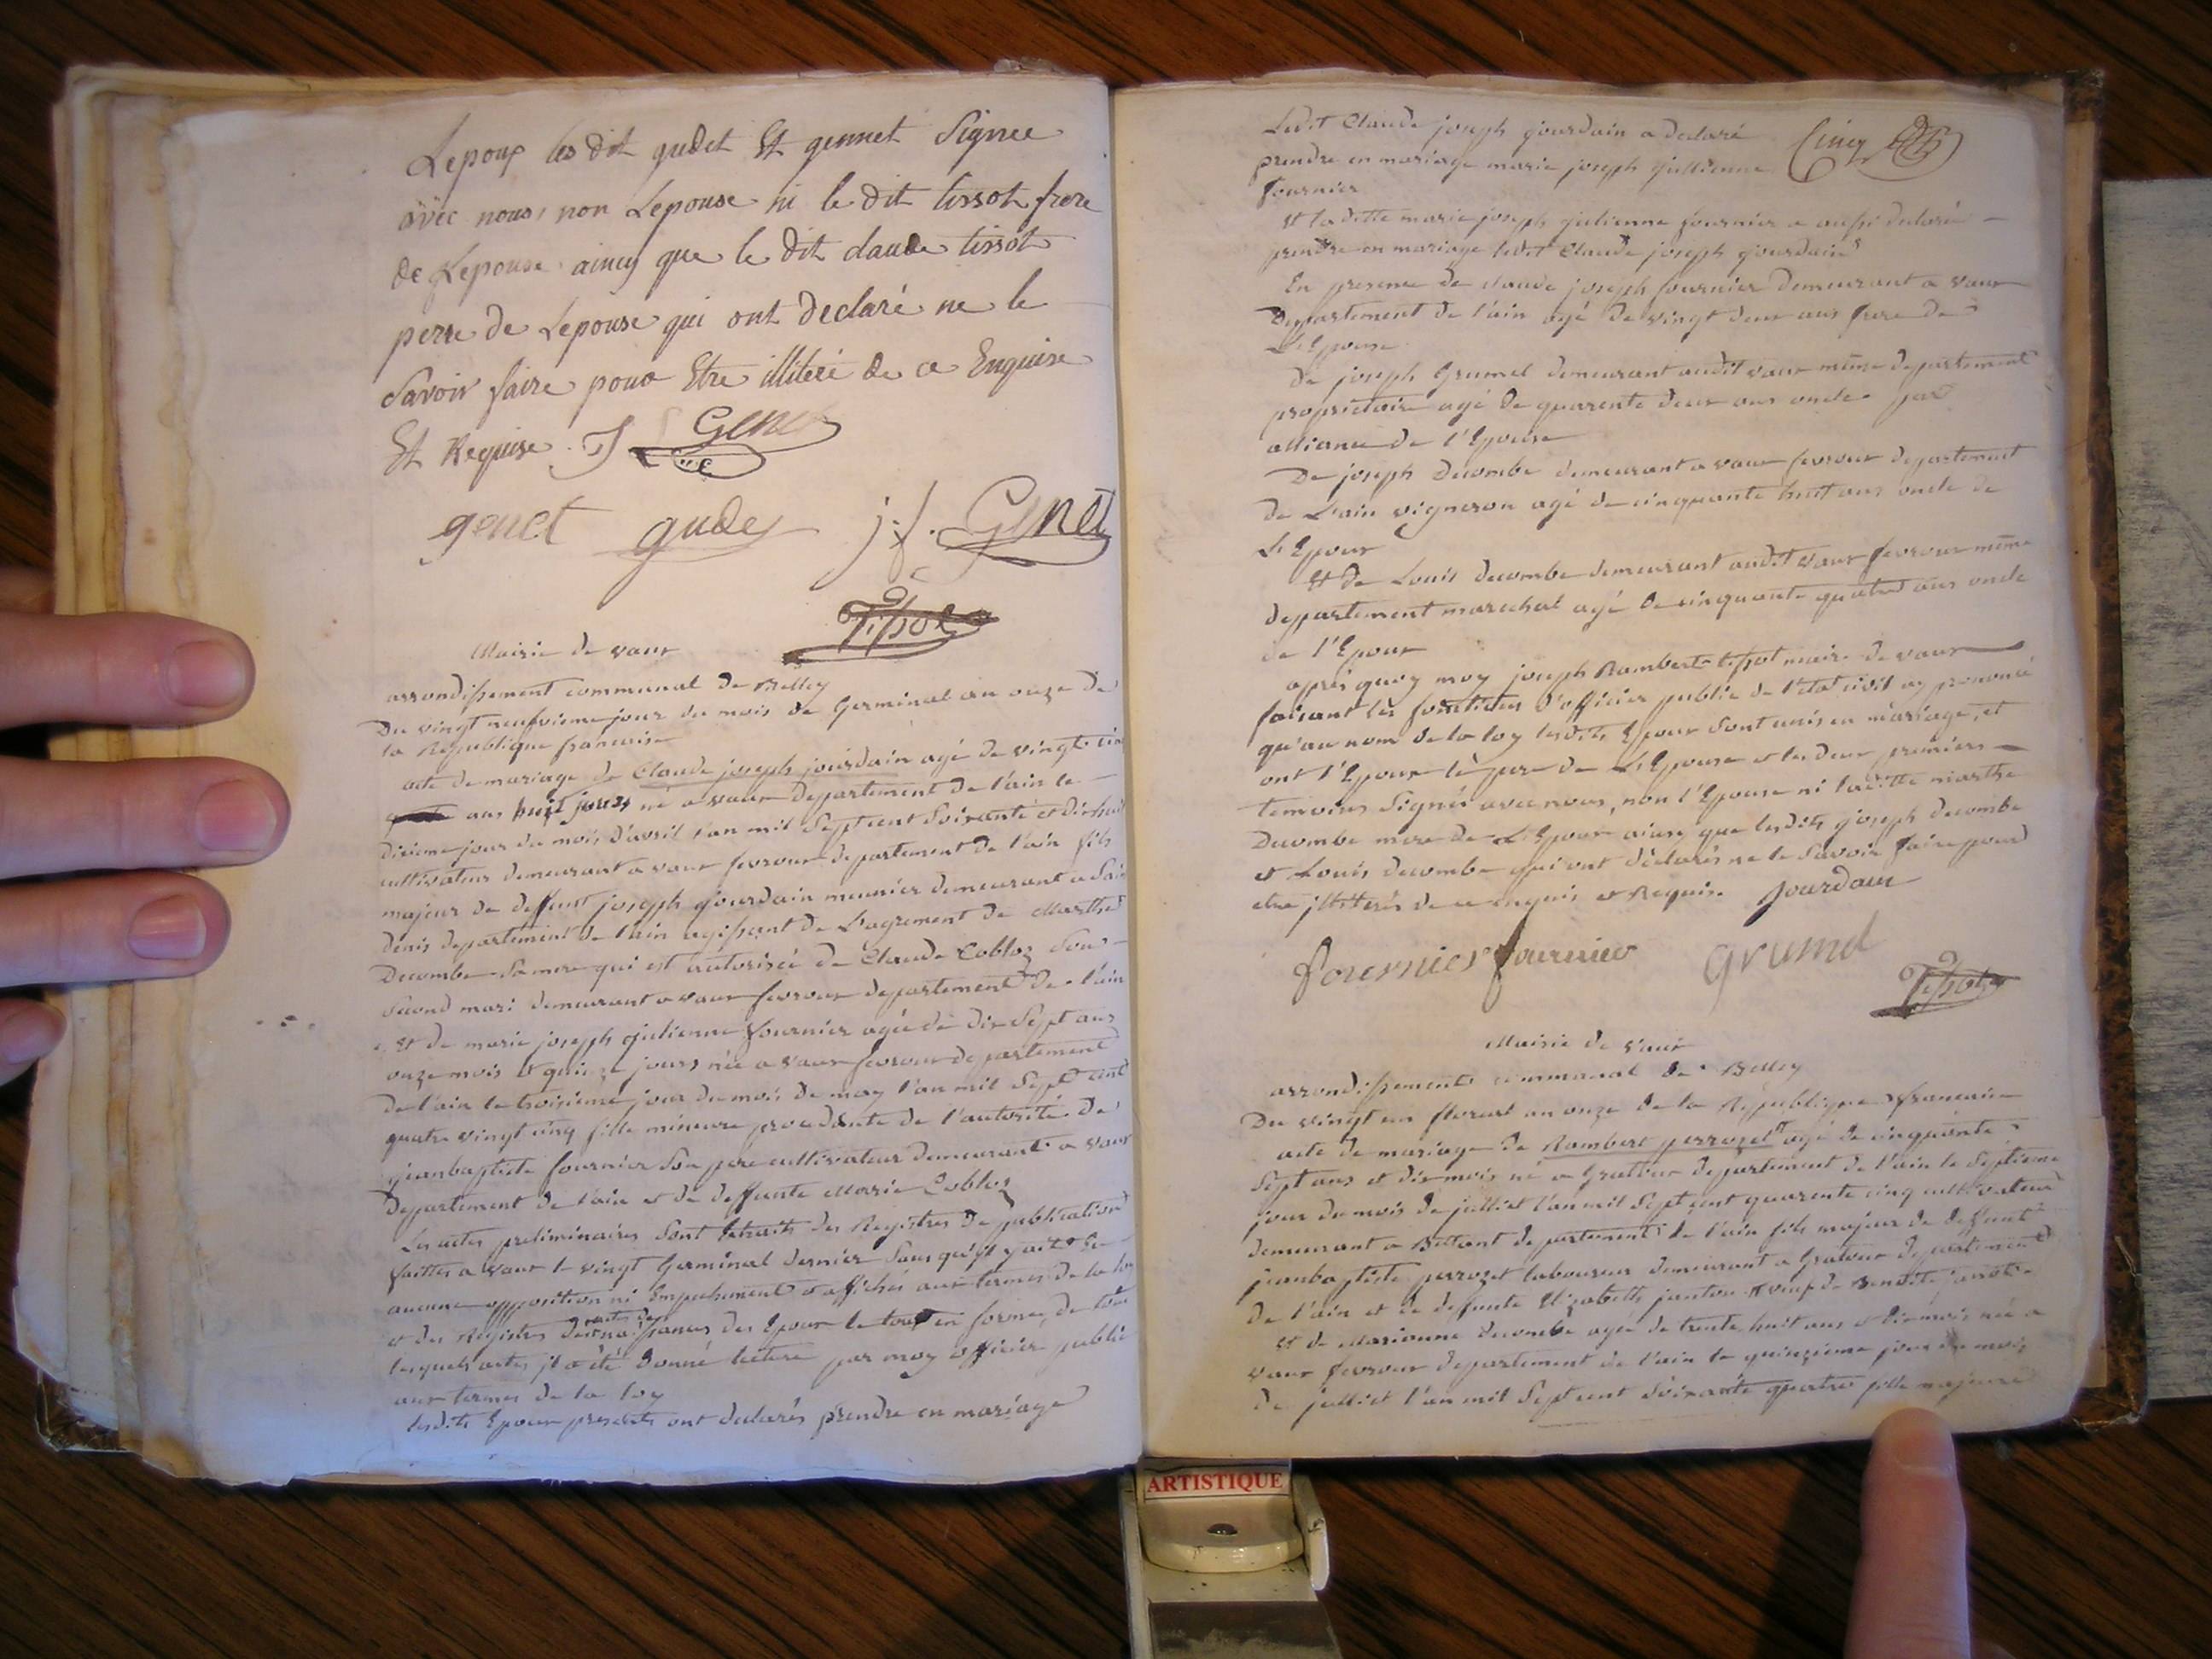 Lepoux les dit gudet Et gennet Signee
avec nous, non Lepouse ni le dit tissot frere
de Lepouse aincy que le dit claude tissot
perre de Lepouse qui ont declaré ne le
Savoir faire pour Etre illiteré de ce Enquise
Et Requise
genet gudet j.f. Genet
Tissot
Mairie de vaux
arrondissement communal de Belley
Du vingt neufvieme jour du mois de Germinal an onze de
la Republique francaise
acte de mariage de Claude joseph jourdain agé de vingt cinq
ans huit jours né a vaux departement de l'ain le
dixieme jour du mois d'avril l'an mil Sept cent Soixante et dix huit
cultivateur demeurant a vaux fevroux departement de l'ain fils
majeur de deffunt joseph jourdain meunier demeurant a Saint
denis departement de l'ain agissant de L'agrement de Marthe
Decombe Sa mere qui est autorisée de Claude Cobloz Son
Second mari demeurant a vaux fevroux departement de l'ain
Et de marie joseph julienne fournier agée de dix Sept ans
onze mois et quinze jours née a vaux fevroux departement
de l'ain le troisieme jour du mois de may l'an mil Sept cent
quatre vingt cinq fille mineure procedante de l'autorité de
jeanbaptiste fournier Son pere cultivateur demeurant a vaux
departement de l'ain et de deffunte Marie Cobloz
Les actes preliminaires Sont Extraits des Registres de publication
faittes a vaux le vingt Germinal dernier Sans qu'il y ait eu
aucune opposition ni Empechement et affichés aux termes de la loy
et des Registres des actes de naissances des Epoux le tout en forme, de tous
lesquels actes il a été donné lecture par moy officier public
aux termes de la loy
lesdits Epoux presents ont declarés prendre en mariage
Ledit Claude joseph jourdain a declaré Cinq
prendre en mariage marie joseph jullienne
fournier
Et laditte marie joseph julienne fournier a aussi declaré
prendre en mariage ledit Claude joseph jourdain
En presence de claude joseph fournier demeurant a vaux
Departement de l'ain agé de vingt deux ans frere de
L'Epouse
De joseph Grumel demeurant audit vaux même departement
proprietaire agé de quarente deux ans oncle par
alliance de l'Epouse
De joseph Decombe demeurant a vaux fevroux departement
de L'ain vigneron agé de cinquante huit ans oncle de
L'Epoux
Et de Louis decombe demeurant audit vaux fevroux même
departement marechal agé de cinquante quatre ans oncle
de l'Epoux
après quoy moy joseph Rambert tissot maire de vaux
faisant les fonctions d'officier public de l'etat civil ay prononcé
qu'au nom de la loy lesdits Epoux Sont unis en mariage, et
ont l'Epoux le pere de L'Epouse et les deux premiers
temoins Signés avec nous, non l'Epouse ni laditte marthe
Decombe mere de L'Epoux ainsy que lesdits joseph decombe
et Louis decombe qui ont déclarés ne le Savoir faire pour
etre illitterés de ce enquis et Requis. Jourdain
fournier fournier Grumel
Tissot
Mairie de vaux
arrondissement communal de Belley
Du vingt un floreal an onze de la Republique francaise
acte de mariage de Rambert perrozet agé de cinquante
Sept ans et dix mois né a Gratoux departement de l'ain le Septieme
jour du mois de julliet l'an mil Sept cent quarente cinq cultivateur
demeurant a Bettant departement de l'ain fils majeur de deffunt
jeanbaptiste perrozet laboureur demeurant a Gratoux departement
de l'ain et de defunte Elizabeth janton et veuf de Benoite
Et de Marianne decombe agée de trente huit ans et dix mois née a
vaux fevroux departement de l'ain le quinzieme jour du mois
de julliet l'an mil Sept cent Soixante quatre fille majeure
ARTISTIQUE